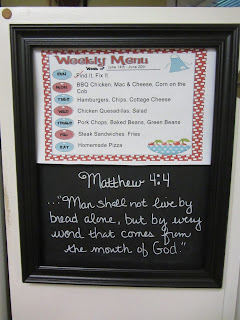 Weekly Menu
Week of June 14th - June 20th
SUN Find It, Fix It
MON BBQ Chicken, Mac & Cheese, Corn on the
Cob
TUES Hamburgers, Chips, Cottage Cheese
WED Chicken Quesadillas, Salad
THURS Pork Chops, Baked Beans, Green Beans
FRI Steak Sandwiches, Fries
SAT Homemade Pizza
Matthew 4:4
..."Man shall not live by
bread alone, but by every
word that comes from
the mouth of God."